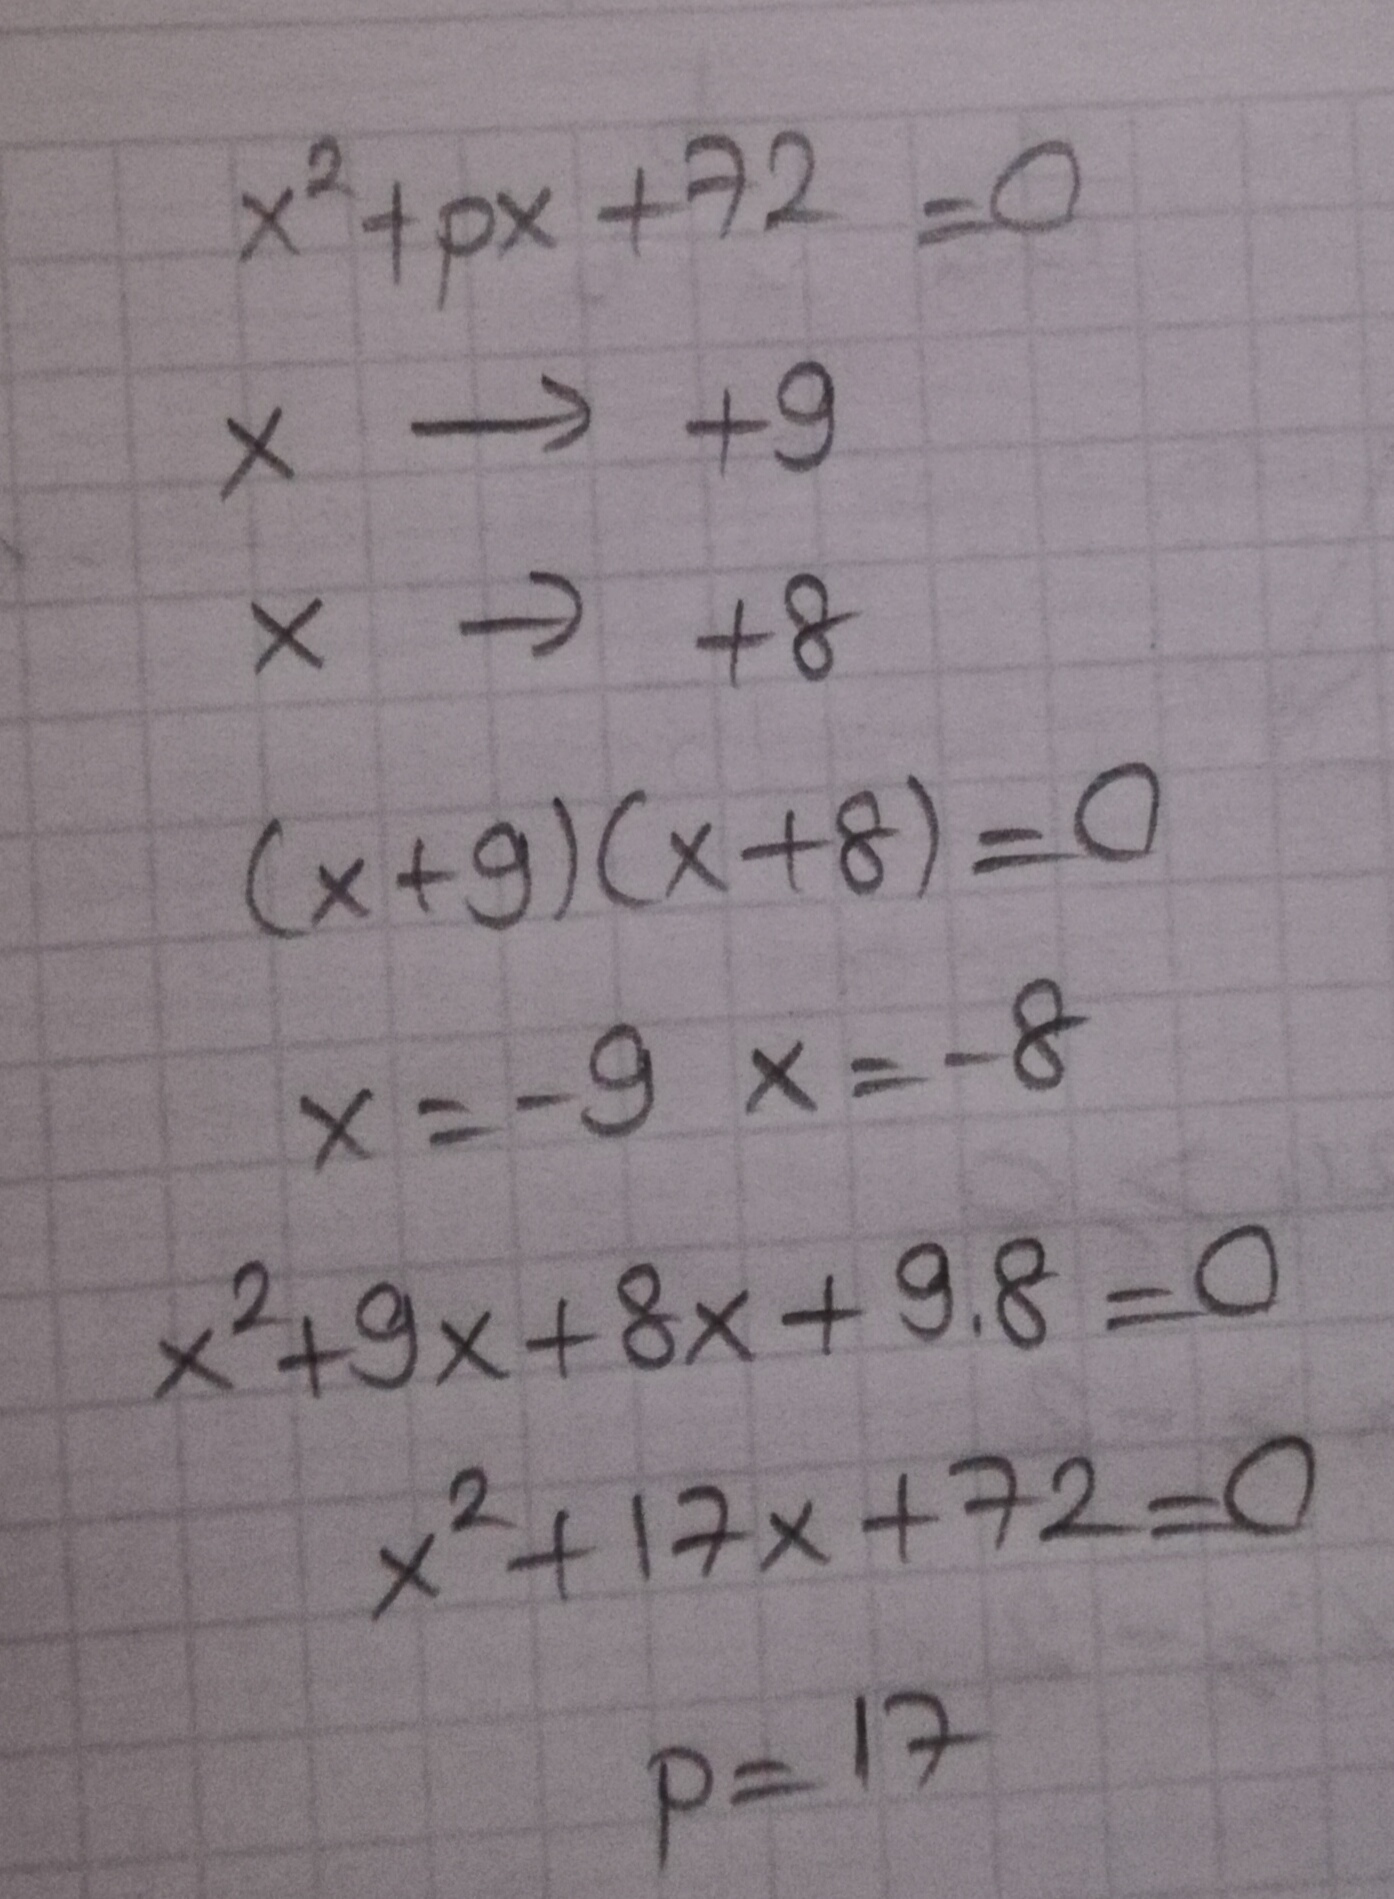 x²+px+72=0
x → +9
x → +8
(x+9)(x+8)=0
x=-9 x=-8
x²+9x+8x+9.8=0
x²+17x+72=0
p=17